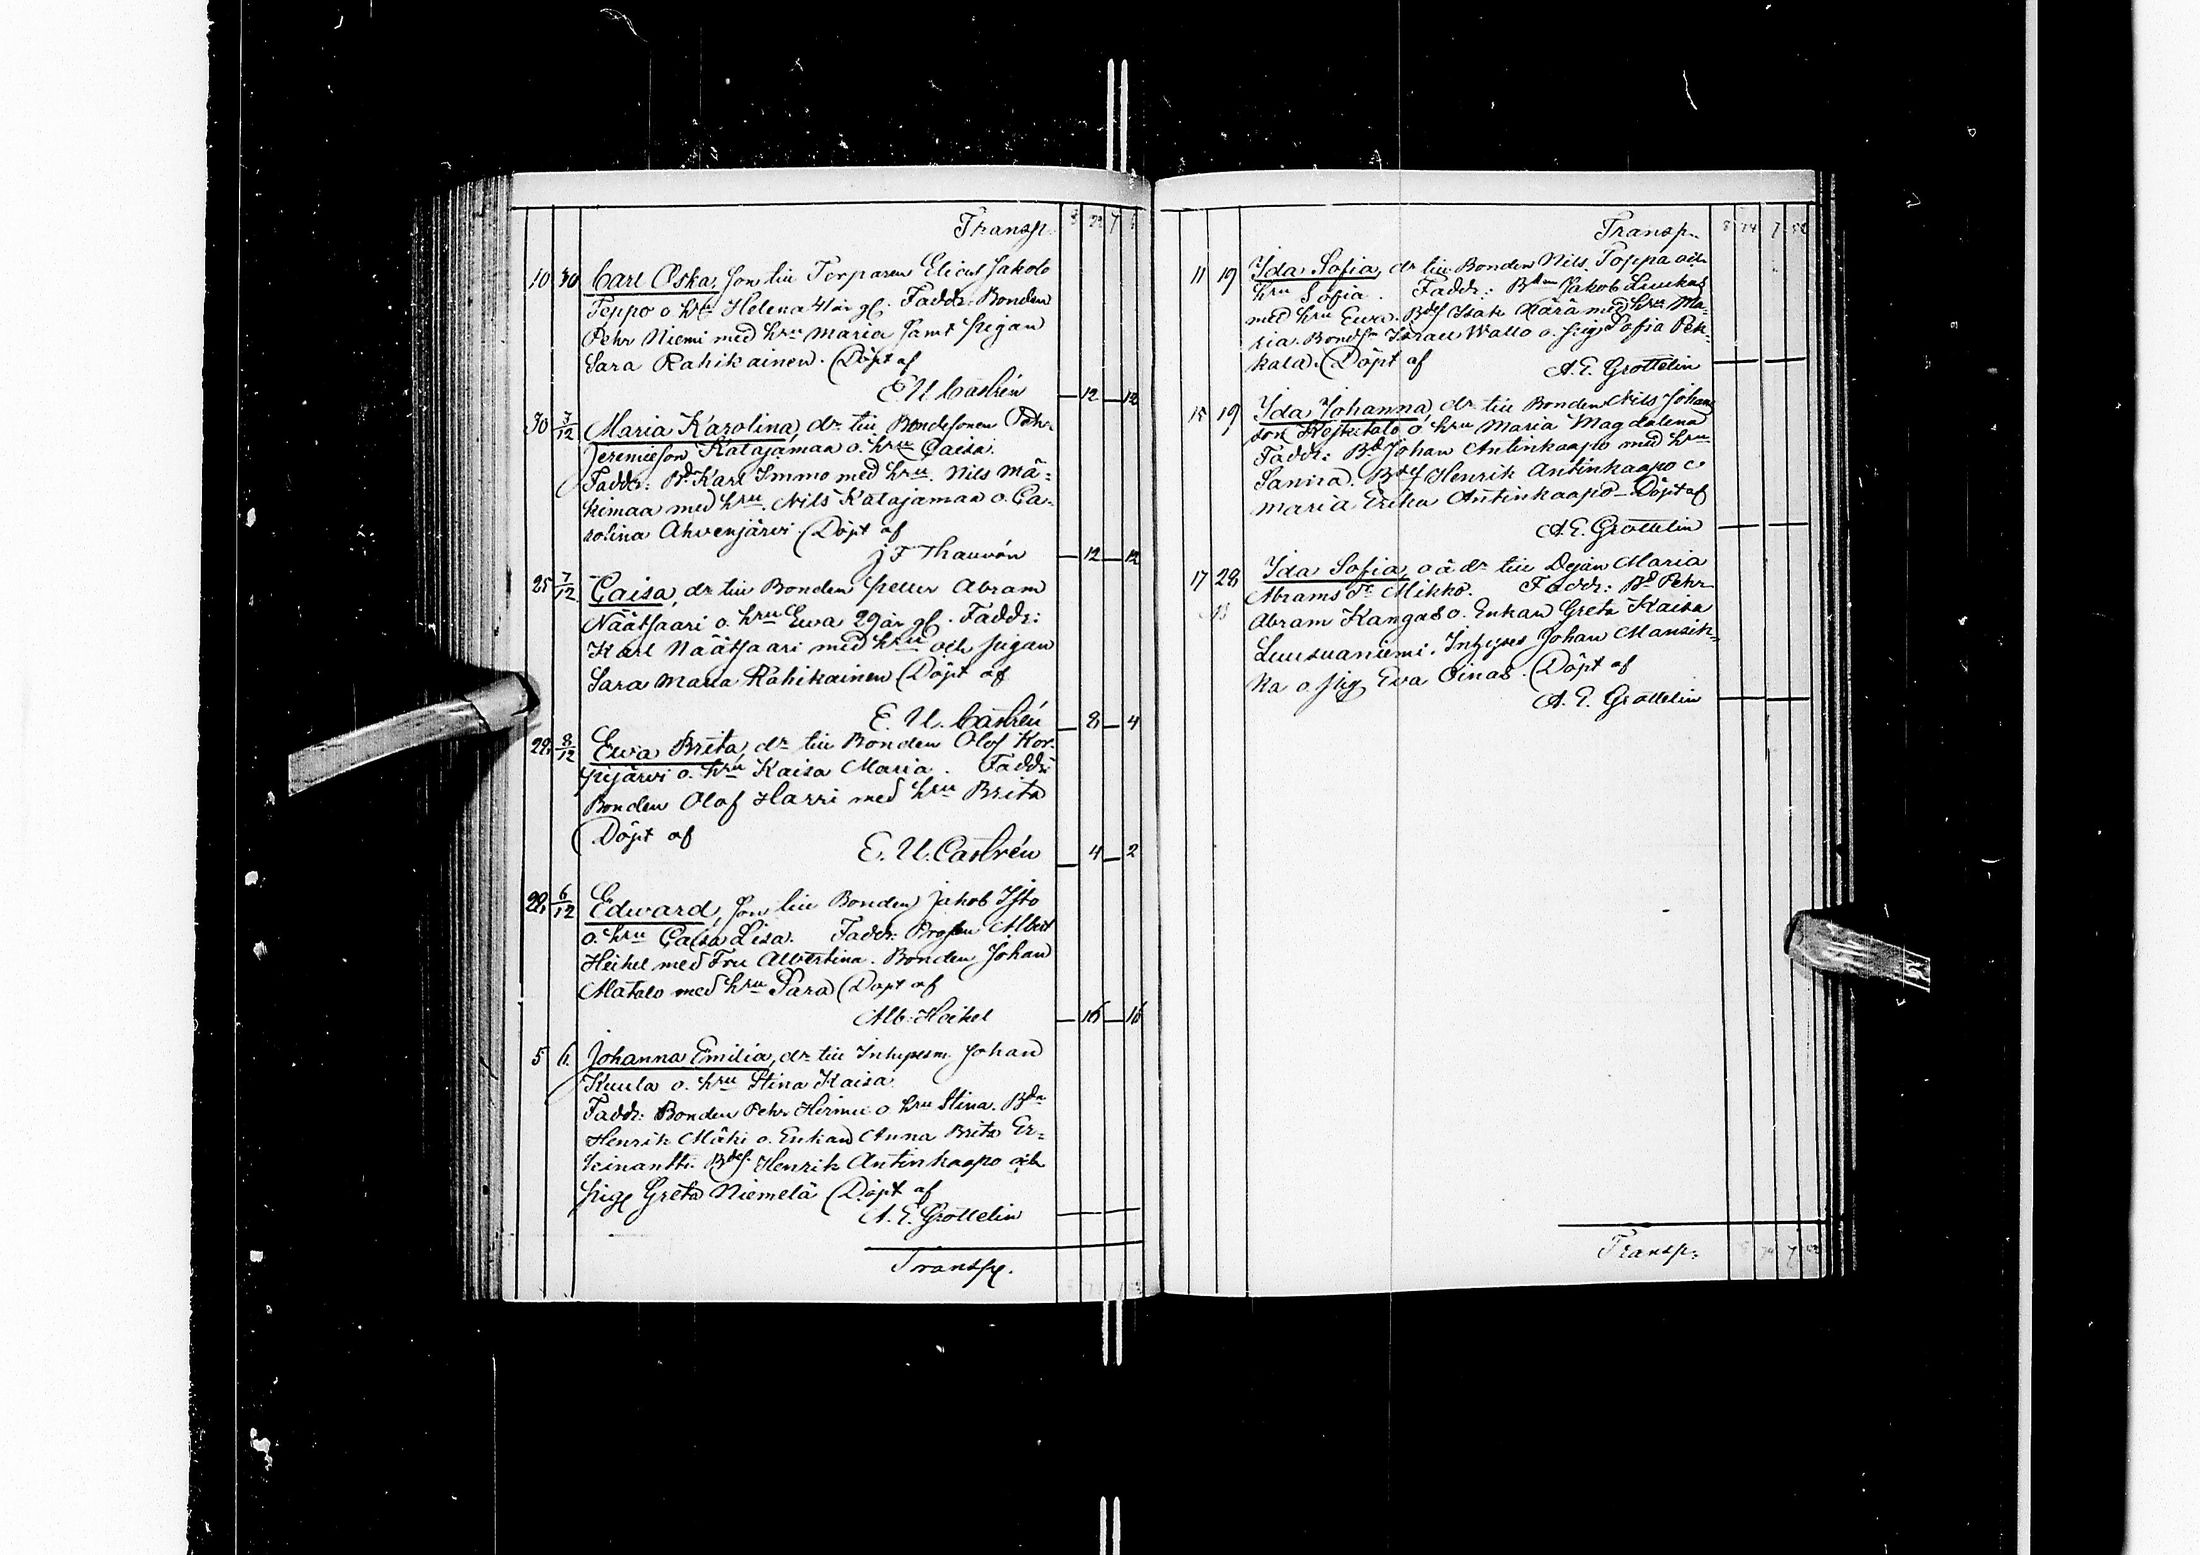 Transp. 3 22 7
10 30 Carl Oskar, son till Torparen Jakob
Teppo o. hru Helena 41 år gl. Faddr: Bonden
Pehr Niemi med hru Maria samt pigan
Sara Rahikainen. (Döpt af
E U Castrén — 12 — 12
30 7/12 Maria Karolina, dr till Bondesonen Pehr
Jeremieson Katajamaa o. hru Caisa.
Faddr: Bd Karl Immo med hru. Nils Mä-
kimaa med hru. Nils Katajamaa o. Ca-
rolina Ahvenjärvi. (Döpt af
J F Thauvón — 12 — 12
25 7/12 Caisa, dr till Bonden Petter Abram
Näätsaari o. hru Ewa 29 år gl. Faddr:
Karl Näätsaari med hru och pigan
Sara Maria Rahikainen (Döpt af
E. U. Castrén — 8 — 4
28 8/12 Ewa Brita, dr till Bonden Olof Kor-
pijärvi o. hru Kaisa Maria. Faddr:
Bonden Olof Harri med hru Brita
(Döpt af
E. U. Castrén — 4 — 2
28 6/12 Edward, son till Bonden Jakob
o. hru Caisa Lisa. Faddr: Prosten Albert
Heikel med Fru Albertina. Bonden Johan
Matalo med hru Sara (Döpt af
Alb. Heikel — 16 — 16
5 6 Johanna Emilia, dr till Inhysesm. Johan
Kuula o. hru Stina Kaisa.
Faddr: Bonden Pehr Hirmu o hru Stina. Bdn
Henrik Mäki o. Enkan Anna Brita Er-
kinantti. Bdes. Henrik Antinkaapo och
pig. Greta Niemelä (Döpt af
A. E. Grottelin — —
Transp.
Transp. 8 74 7 52
11 19 Ida Sofia, dr till Bonden Nils Poppa och
hru Sofia. Faddr: Jakob Liukas
med hru Ewa. Bds Isak Kärä med hru Ma-
ria. Israel Wallo o. pig. Sofia Pek-
kala. (Döpt af
A. E. Grottelin — —
15 19 Ida Johanna, dr till Bonden Nils Johans
son o hru Maria Magdalena
Faddr: Bd Johan Antinkaapo med hru
Sanna. Bds Henrik Antinkaapo o
Maria Erika Antinkaapo — Döpt af
A. E. Grottelin — —
17 28 Ida Sofia, o ä dr till Dejan Maria
Abrams dr Mikko. Faddr: Bd Pehr
Abram Kangas o. Enkan Greta Kaisa
Luusuaniemi. Inhyses Johan Mansik-
ka o pig Ewa Oinas. (Döpt af
A. E. Grottelin — —
Transp.